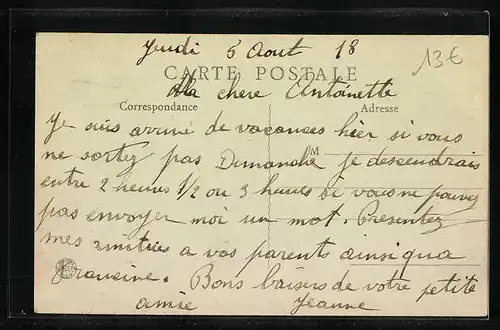 Jeudi 5 Aout 18
13€
CARTE POSTALE
Ma chere Antoinette
Correspondance
Adresse
Je suis arrivé de vacances hier si vous
M
ne sortez pas Dimanche je descendrais
entre 2 heures 1/2 ou 3 heures si vous ne pouvez
pas envoyer moi un mot. Presentez
mes amities a vos parents ainsi qua
Francine. Bons baisers de votre petite
amie Jeanne